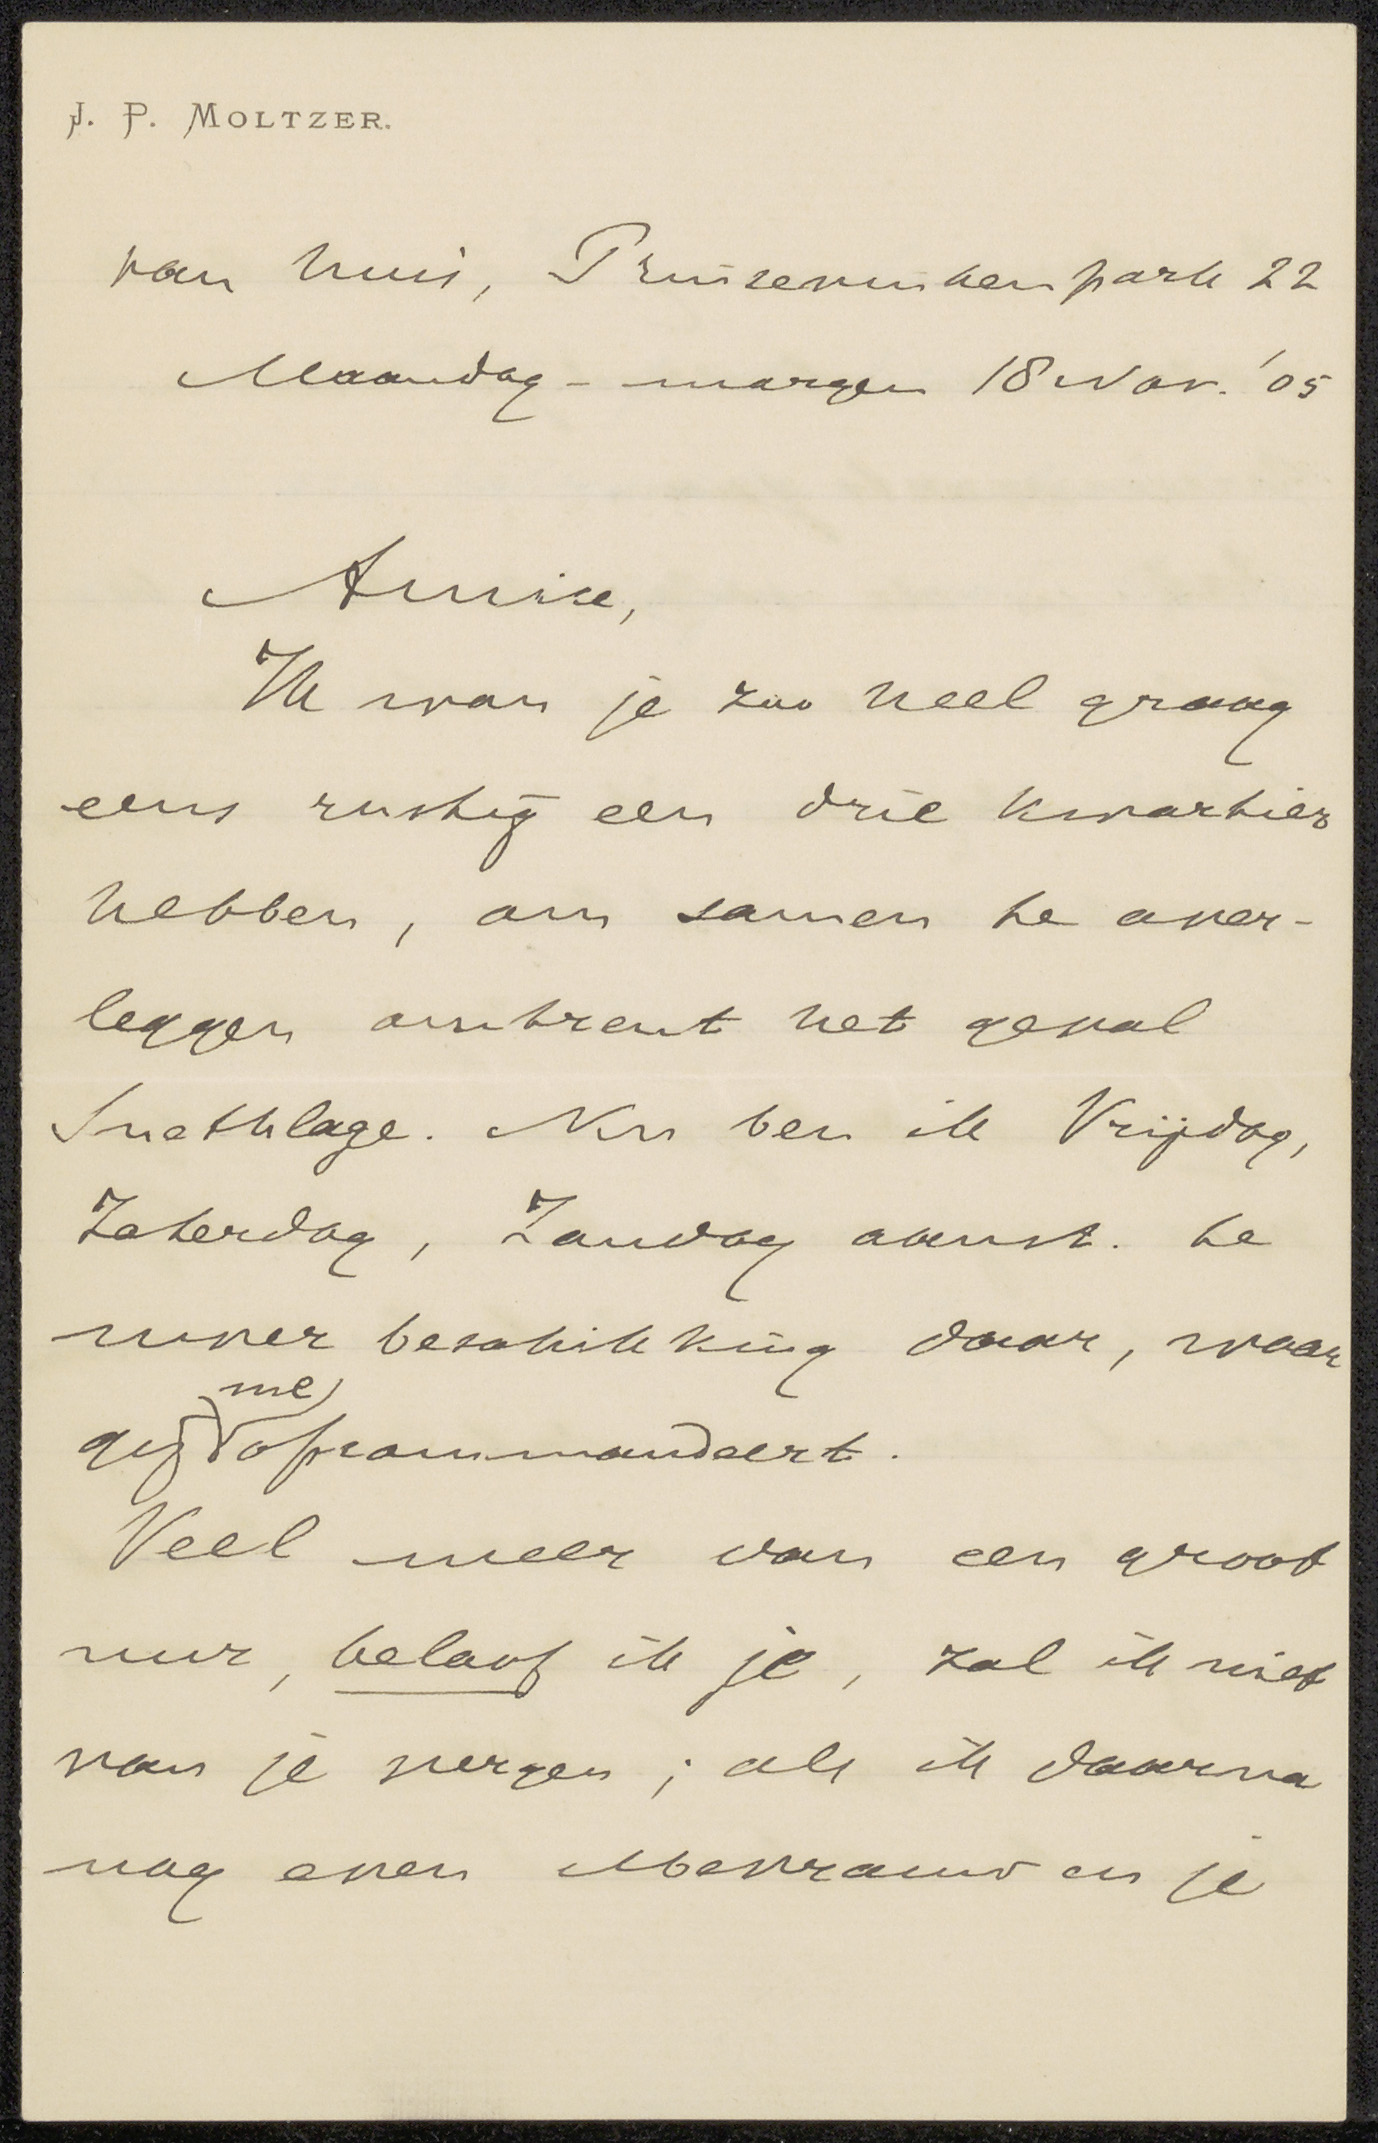 J. P. MOLTZER.
van huis, Prinsevinkenpark 22
Maandag-morgen 18 Nov. '05
Amice,
Ik wou je zoo heel graag
eens rustig een drie kwartier
hebben, om samen te over-
leggen omtrent het geval
Snethlage. Nu ben ik Vrijdag,
Zaterdag, Zondag aanst. te
uwer beschikking daar, waar
gij me opcommandeert.
Veel meer dan een groot
uur, beloof ik je, zal ik niet
van je vergen; als ik daarna
nog even Mevrouw en je